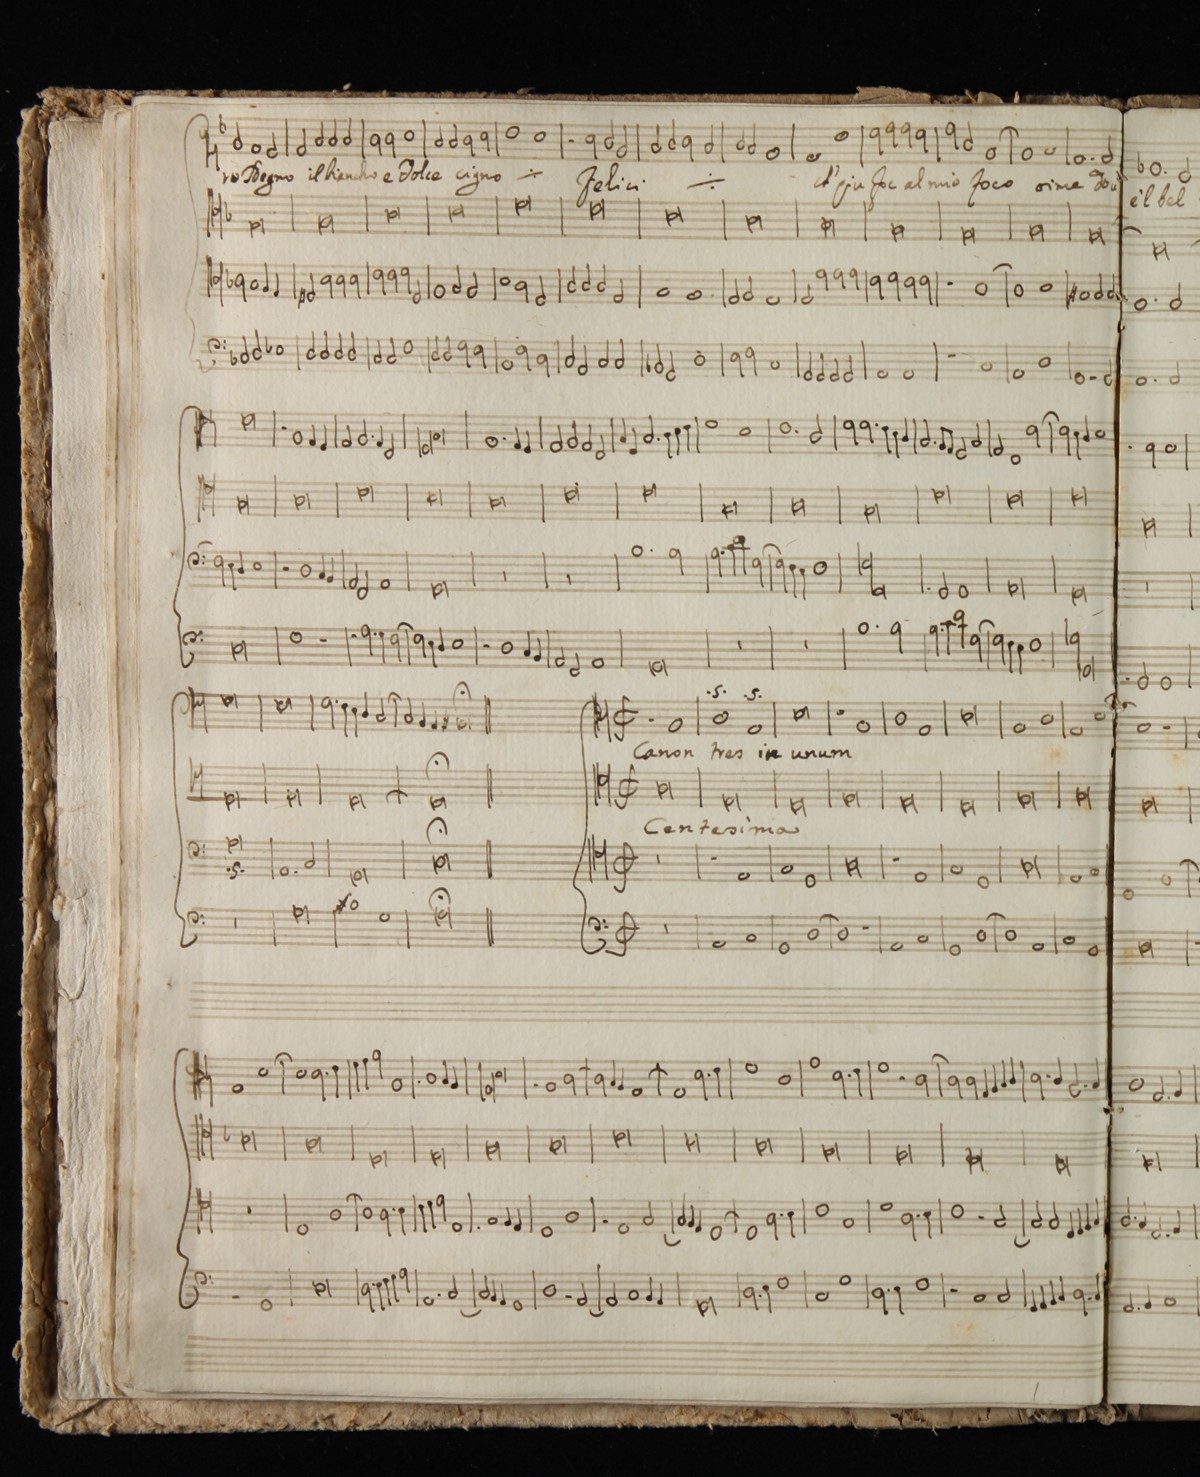 ro Degno il biancho e Dolce cigno ÷ felici ÷ al mio foco oime
e'l bel
.S. .S.
Canon tres in unum
Centesima
.S.